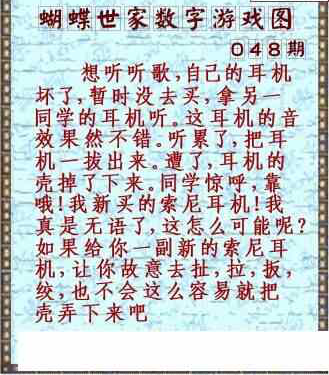 蝴蝶世家数字游戏图
048期
想听听歌,自己的耳机
坏了,暂时没去买,拿另一
同学的耳机听。这耳机的音
效果然不错。听累了,把耳
机一拔出来。遭了,耳机的
壳掉了下来。同学惊呼,靠
哦!我新买的索尼耳机!我
真是无语了,这怎么可能呢?
如果给你一副新的索尼耳
机,让你故意去扯,拉,扳,
绞,也不会这么容易就把
壳弄下来吧